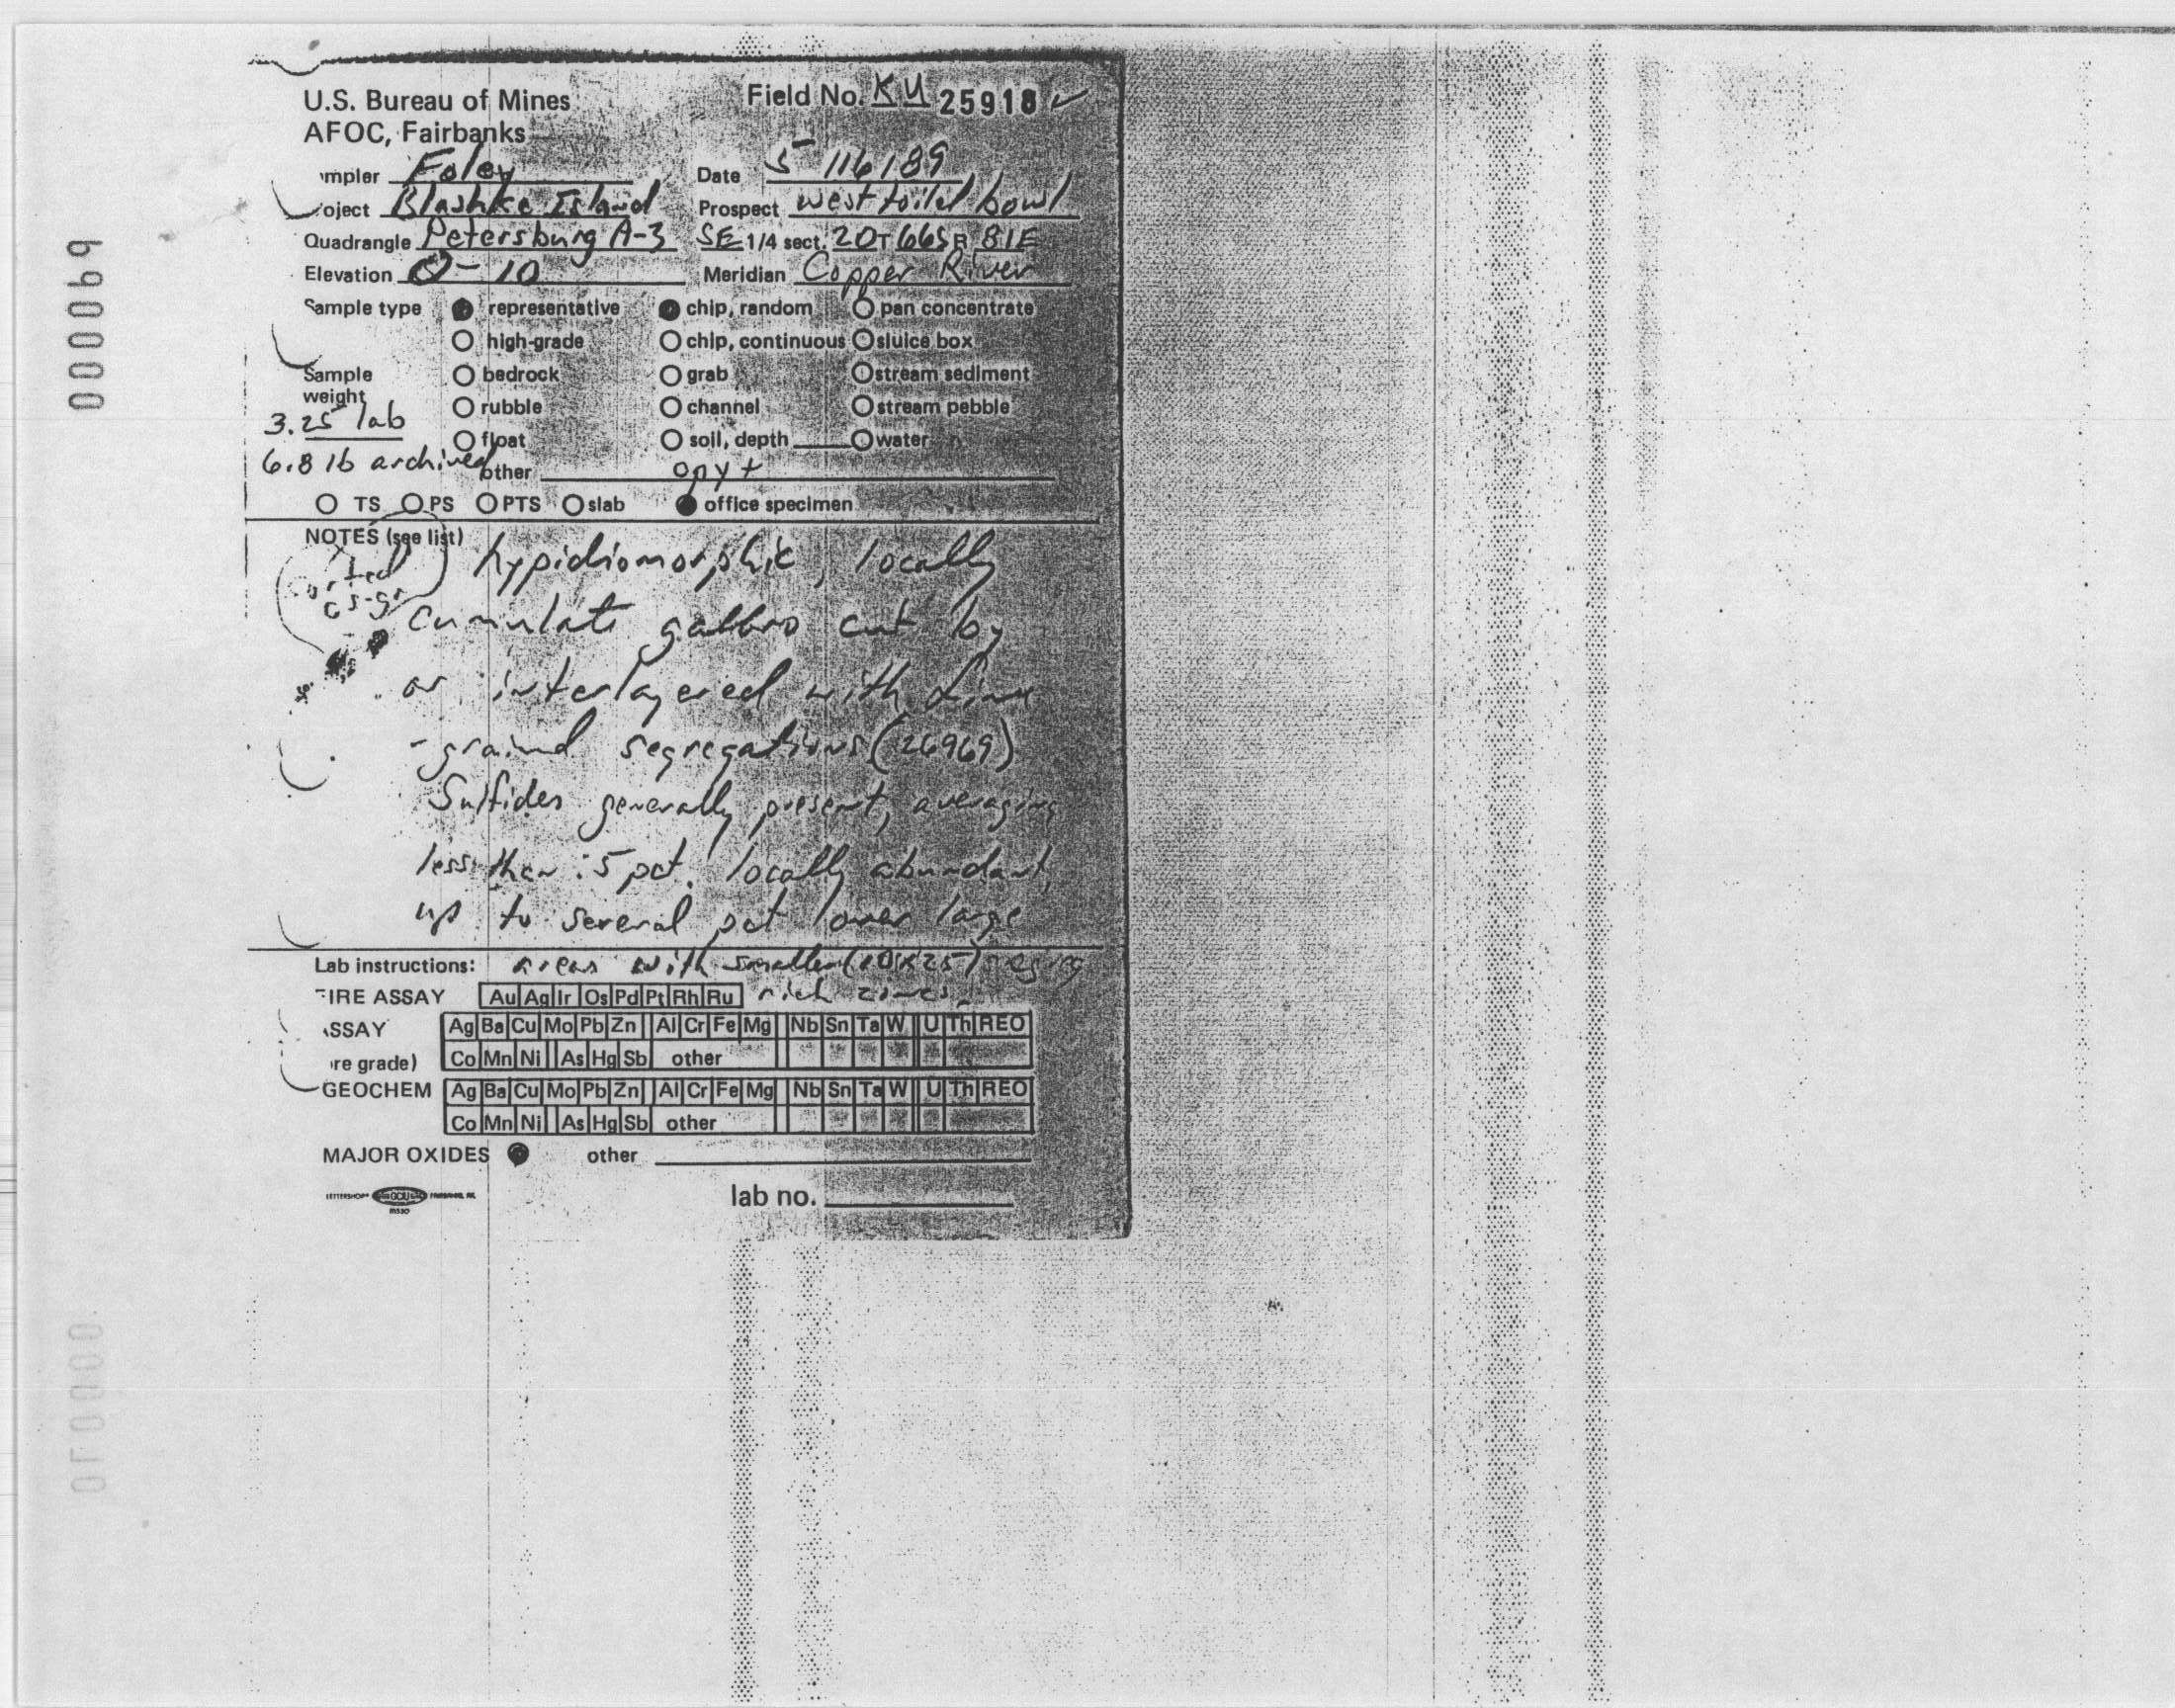 U.S. Bureau of Mines
AFOC, Fairbanks
Field No. KU 25918 ✓
mpler Foley
Date 5 /16/89
oject Blashke Island
Prospect west toilet bowl
Quadrangle Petersburg A-3
SE 1/4 sect. 20 T 66S R 81E
Elevation 0-10
Meridian Copper River
Sample type ● representative ● chip, random O pan concentrate
O high-grade O chip, continuous O sluice box
Sample weight
O bedrock O grab O stream sediment
O rubble O channel O stream pebble
3.25 lab
O float O soil, depth O water
6.8 lb archived
other opy+
O TS O PS O PTS O slab ● office specimen
NOTES (see list)
cs-gr
hypidiomorphic, locally
cumulate gabbro cut by
or interlayered with fine
-grained segregations (26969)
Sulfides generally present, averaging
less than .5 pct. locally abundant,
up to several pct over large
Lab instructions: areas with smaller (10x25)
rich zones.
FIRE ASSAY Au Ag Ir Os Pd Pt Rh Ru
ASSAY Ag Ba Cu Mo Pb Zn Al Cr Fe Mg Nb Sn Ta W U Th REO
re grade) Co Mn Ni As Hg Sb other
GEOCHEM Ag Ba Cu Mo Pb Zn Al Cr Fe Mg Nb Sn Ta W U Th REO
Co Mn Ni As Hg Sb other
MAJOR OXIDES ● other
lab no.
000069
000070